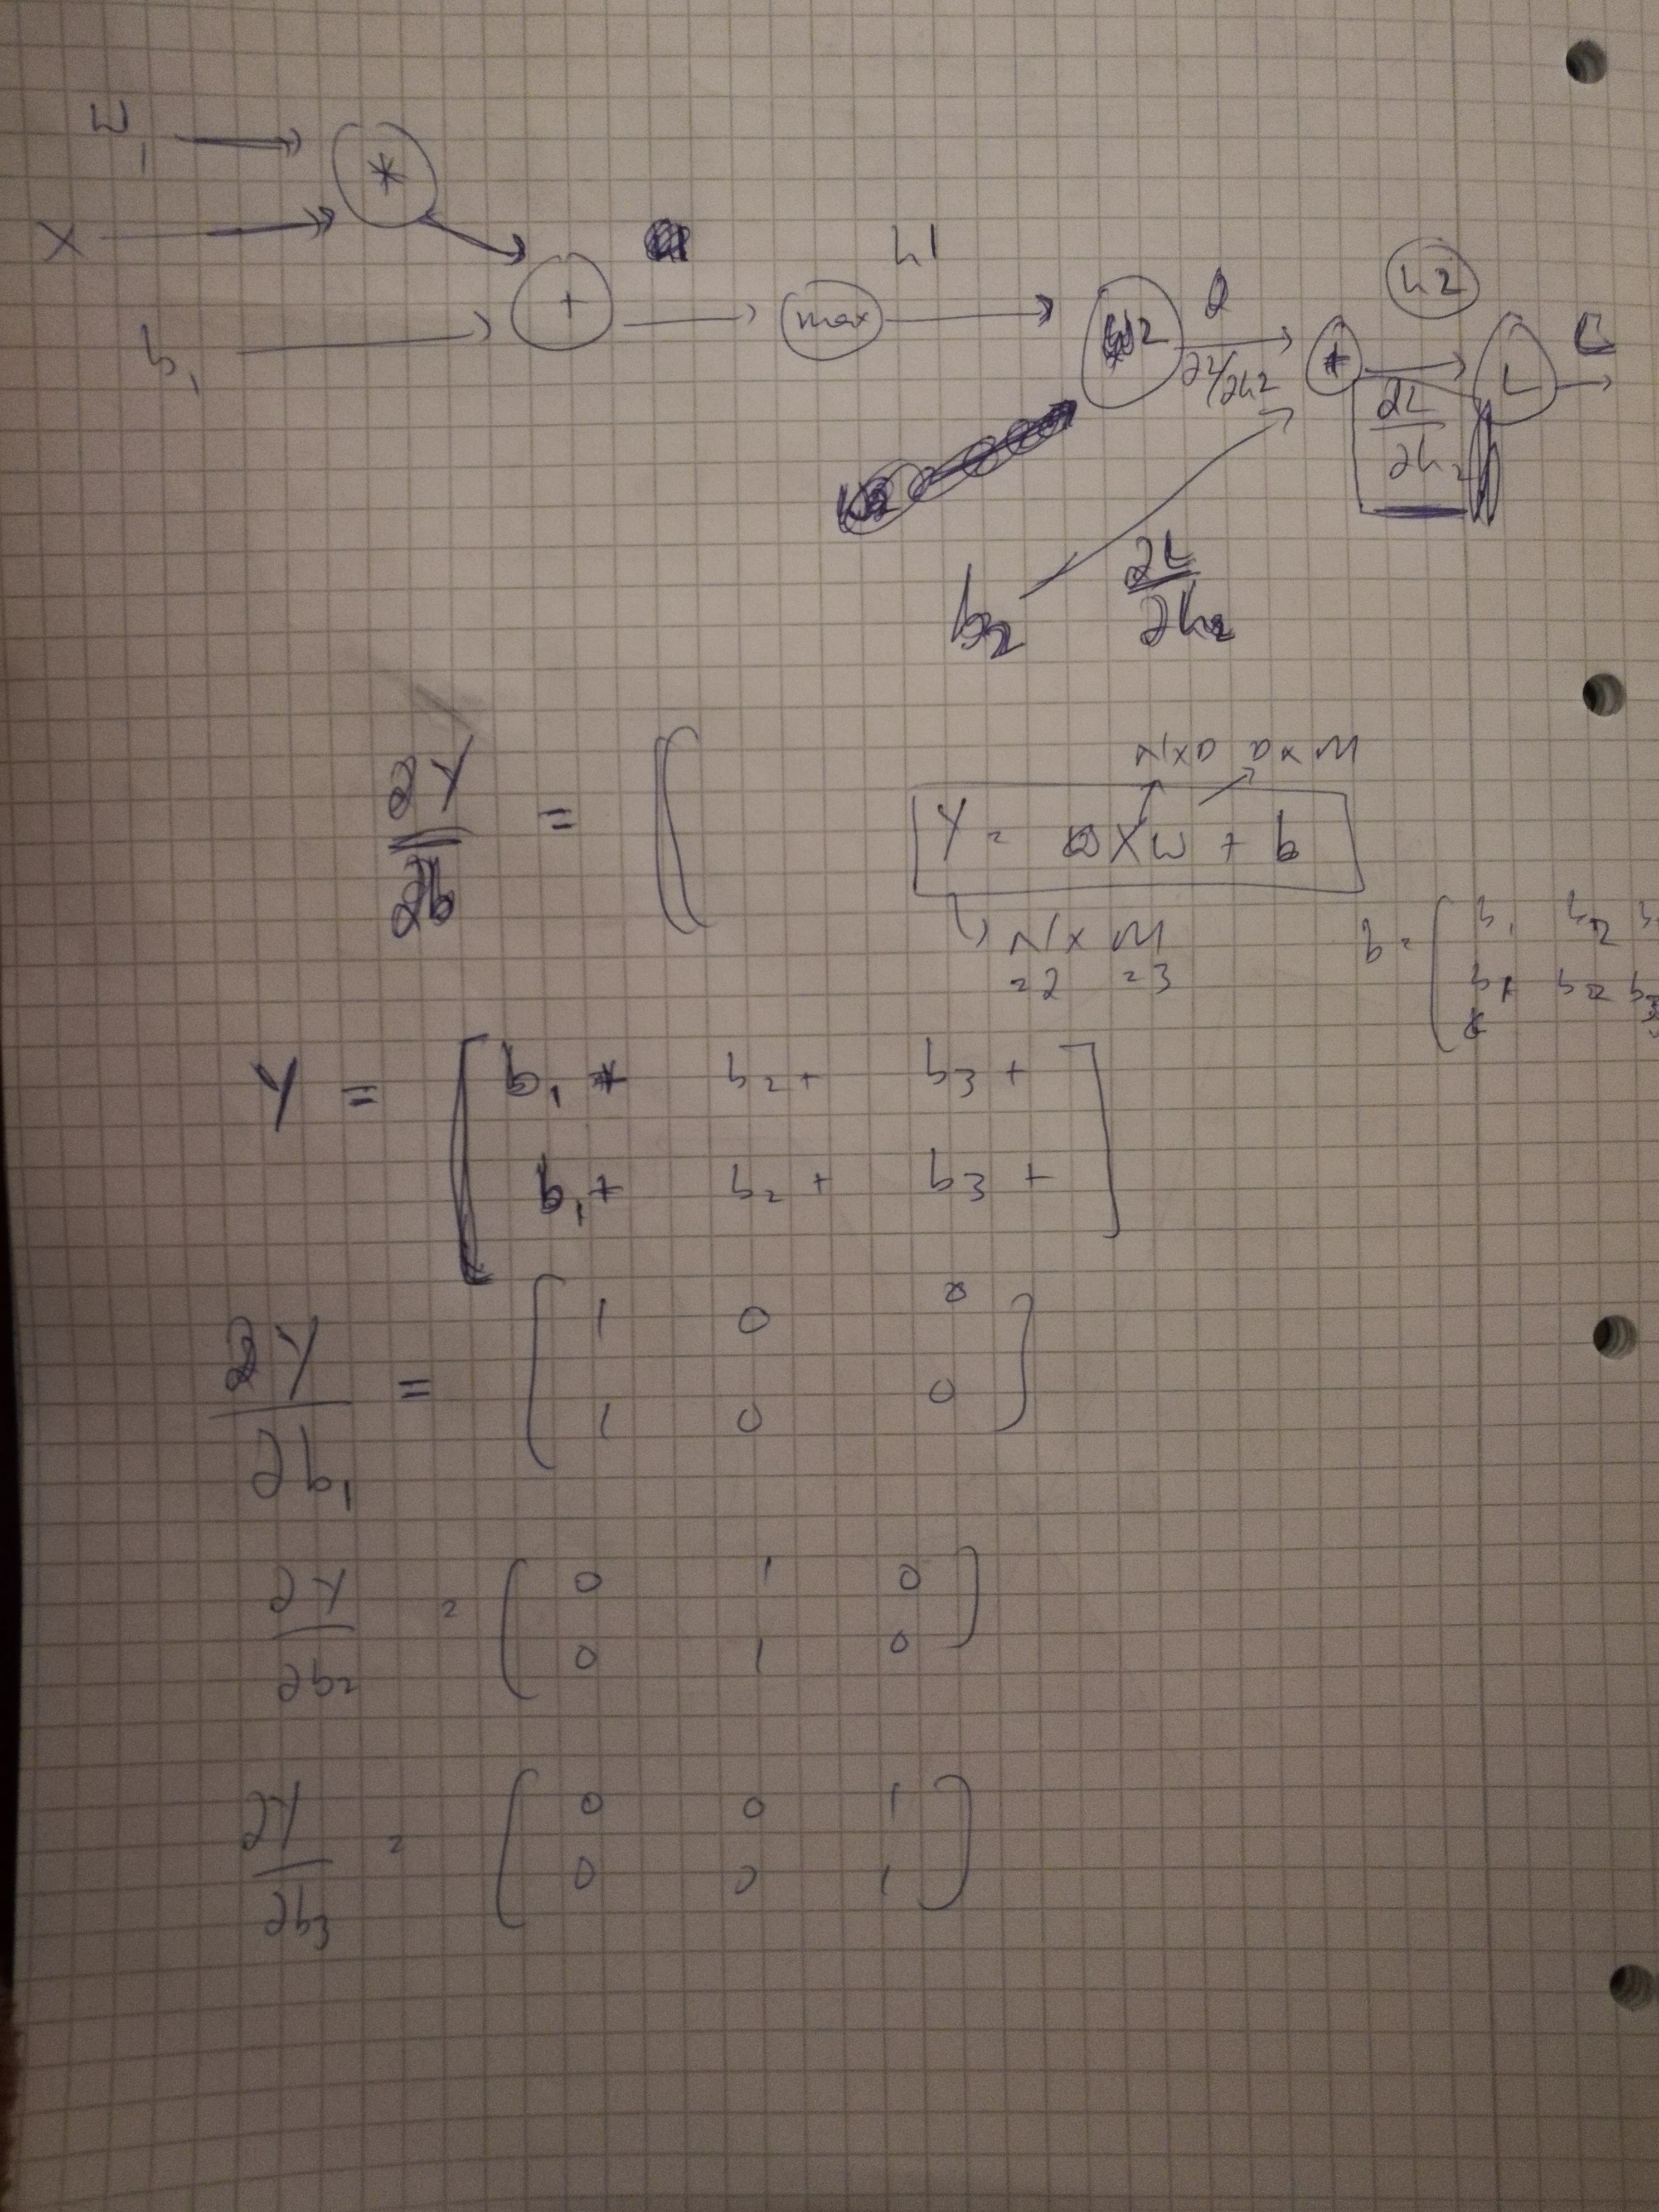 W1
*
X
+
h1
max
h2
b1
W2
∂L/∂h2
+
L
∂L
∂h2
b2
∂L
∂h2
∂Y
∂b
= [
N×D D×M
Y = XW + b
N × M
=2 =3
b = [ b1 b2
b1 b2 b3
Y = [ b1 + b2 + b3 + ]
b1 + b2 + b3 +
∂Y
∂b1
= [ 1 0 0 ]
1 0 0
∂Y
∂b2
= [ 0 1 0 ]
0 1 0
∂Y
∂b3
= [ 0 0 1 ]
0 0 1